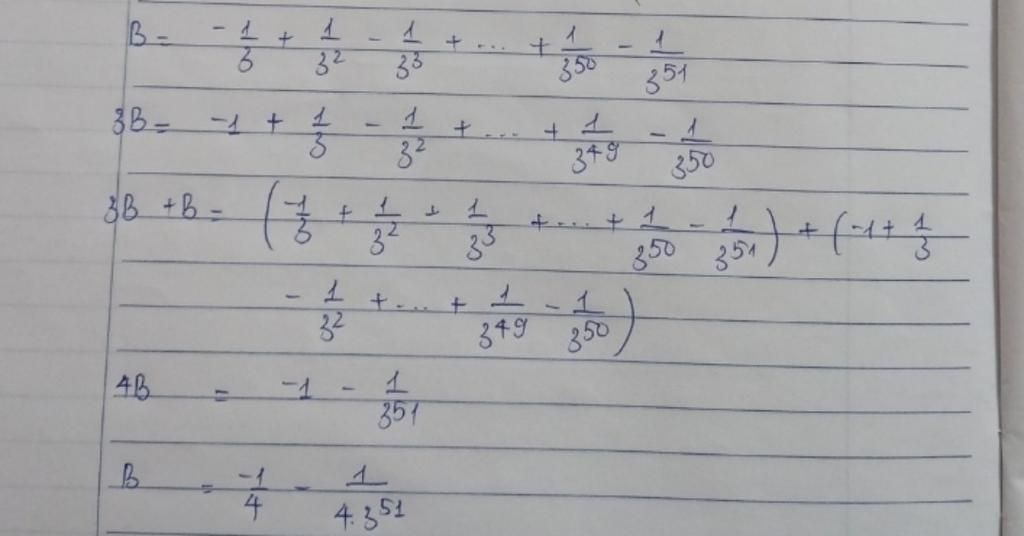 B = -1/3 + 1/3² - 1/3³ + ... + 1/3⁵⁰ - 1/3⁵¹
3B = -1 + 1/3 - 1/3² + ... + 1/3⁴⁹ - 1/3⁵⁰
3B + B = (-1/3 + 1/3² + 1/3³ + ... + 1/3⁵⁰ - 1/3⁵¹) + (-1 + 1/3
- 1/3² + ... + 1/3⁴⁹ - 1/3⁵⁰)
4B = -1 - 1/3⁵¹
B = -1/4 - 1/4.3⁵¹